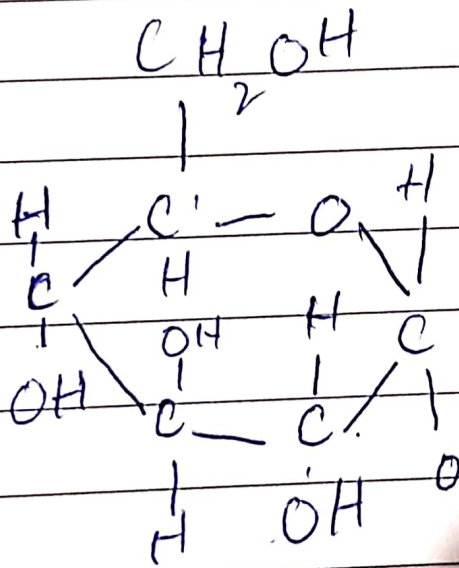 CH2OH
H C O H
C H H
OH C
OH C C
O
H OH